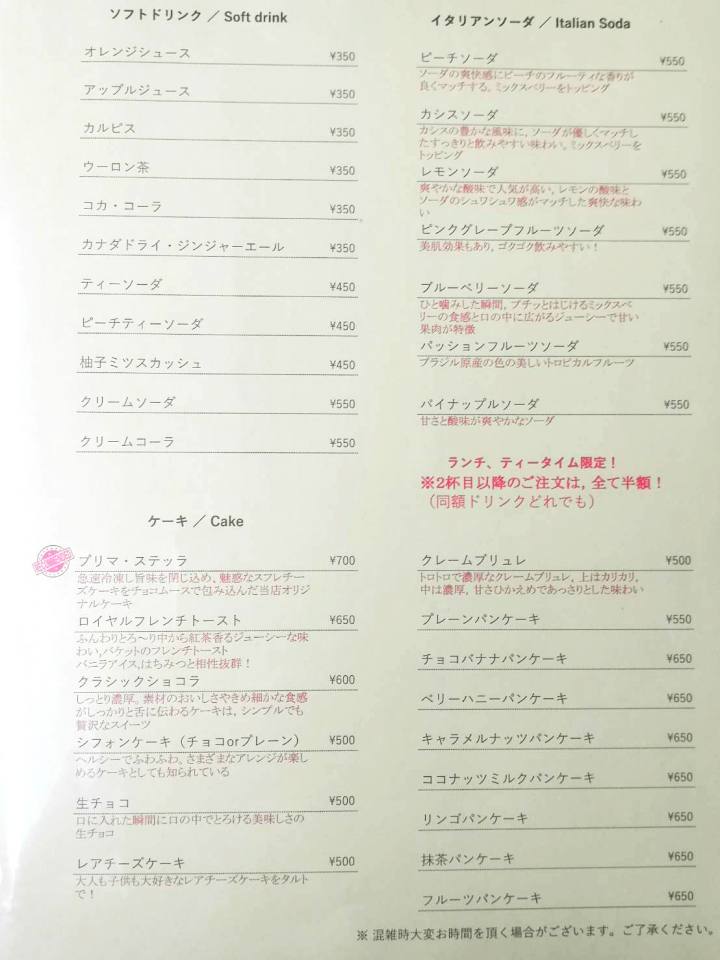 ソフトドリンク / Soft drink
オレンジジュース ¥350
アップルジュース ¥350
カルピス ¥350
ウーロン茶 ¥350
コカ・コーラ ¥350
カナダドライ・ジンジャーエール ¥350
ティーソーダ ¥450
ピーチティーソーダ ¥450
柚子ミツスカッシュ ¥450
クリームソーダ ¥550
クリームコーラ ¥550
イタリアンソーダ / Italian Soda
ピーチソーダ ¥550
ソーダの爽快感にピーチのフルーティな香りが
良くマッチする。ミックスベリーをトッピング
カシスソーダ ¥550
カシスの豊かな風味に, ソーダが優しくマッチし
たすっきりと飲みやすい味わい。ミックスベリーを
トッピング
レモンソーダ ¥550
爽やかな酸味で人気が高い, レモンの酸味と
ソーダのシュワシュワ感がマッチした爽快な味わ
い
ピンクグレープフルーツソーダ ¥550
美肌効果もあり, ゴクゴク飲みやすい！
ブルーベリーソーダ ¥550
ひと噛みした瞬間, プチッとはじけるミックスベ
リーの食感と口の中に広がるジューシーで甘い
果肉が特徴
パッションフルーツソーダ ¥550
ブラジル原産の色の美しいトロピカルフルーツ
パイナップルソーダ ¥550
甘さと酸味が爽やかなソーダ
ランチ、ティータイム限定！
※2杯目以降のご注文は, 全て半額！
（同額ドリンクどれでも）
ケーキ / Cake
プリマ・ステッラ ¥700
急速冷凍し旨味を閉じ込め、魅惑なスフレチー
ズケーキをチョコムースで包み込んだ当店オリジ
ナルケーキ
ロイヤルフレンチトースト ¥650
ふんわりとろ～り中から紅茶香るジューシーな味
わい,バケットのフレンチトースト
バニラアイス,はちみつと相性抜群！
クラシックショコラ ¥600
しっとり濃厚。素材のおいしさやきめ細かな食感
がしっかりと舌に伝わるケーキは, シンプルでも
贅沢なスイーツ
シフォンケーキ（チョコorプレーン） ¥500
ヘルシーでふわふわ。さまざまなアレンジが楽し
めるケーキとしても知られている
生チョコ ¥500
口に入れた瞬間に口の中でとろける美味しさの
生チョコ
レアチーズケーキ ¥500
大人も子供も大好きなレアチーズケーキをタルト
で！
クレームブリュレ ¥500
トロトロで濃厚なクレームブリュレ, 上はカリカリ,
中は濃厚, 甘さひかえめであっさりとした味わい
プレーンパンケーキ ¥550
チョコバナナパンケーキ ¥650
ベリーハニーパンケーキ ¥650
キャラメルナッツパンケーキ ¥650
ココナッツミルクパンケーキ ¥650
リンゴパンケーキ ¥650
抹茶パンケーキ ¥650
フルーツパンケーキ ¥650
※ 混雑時大変お時間を頂く場合がございます。ご了承ください。